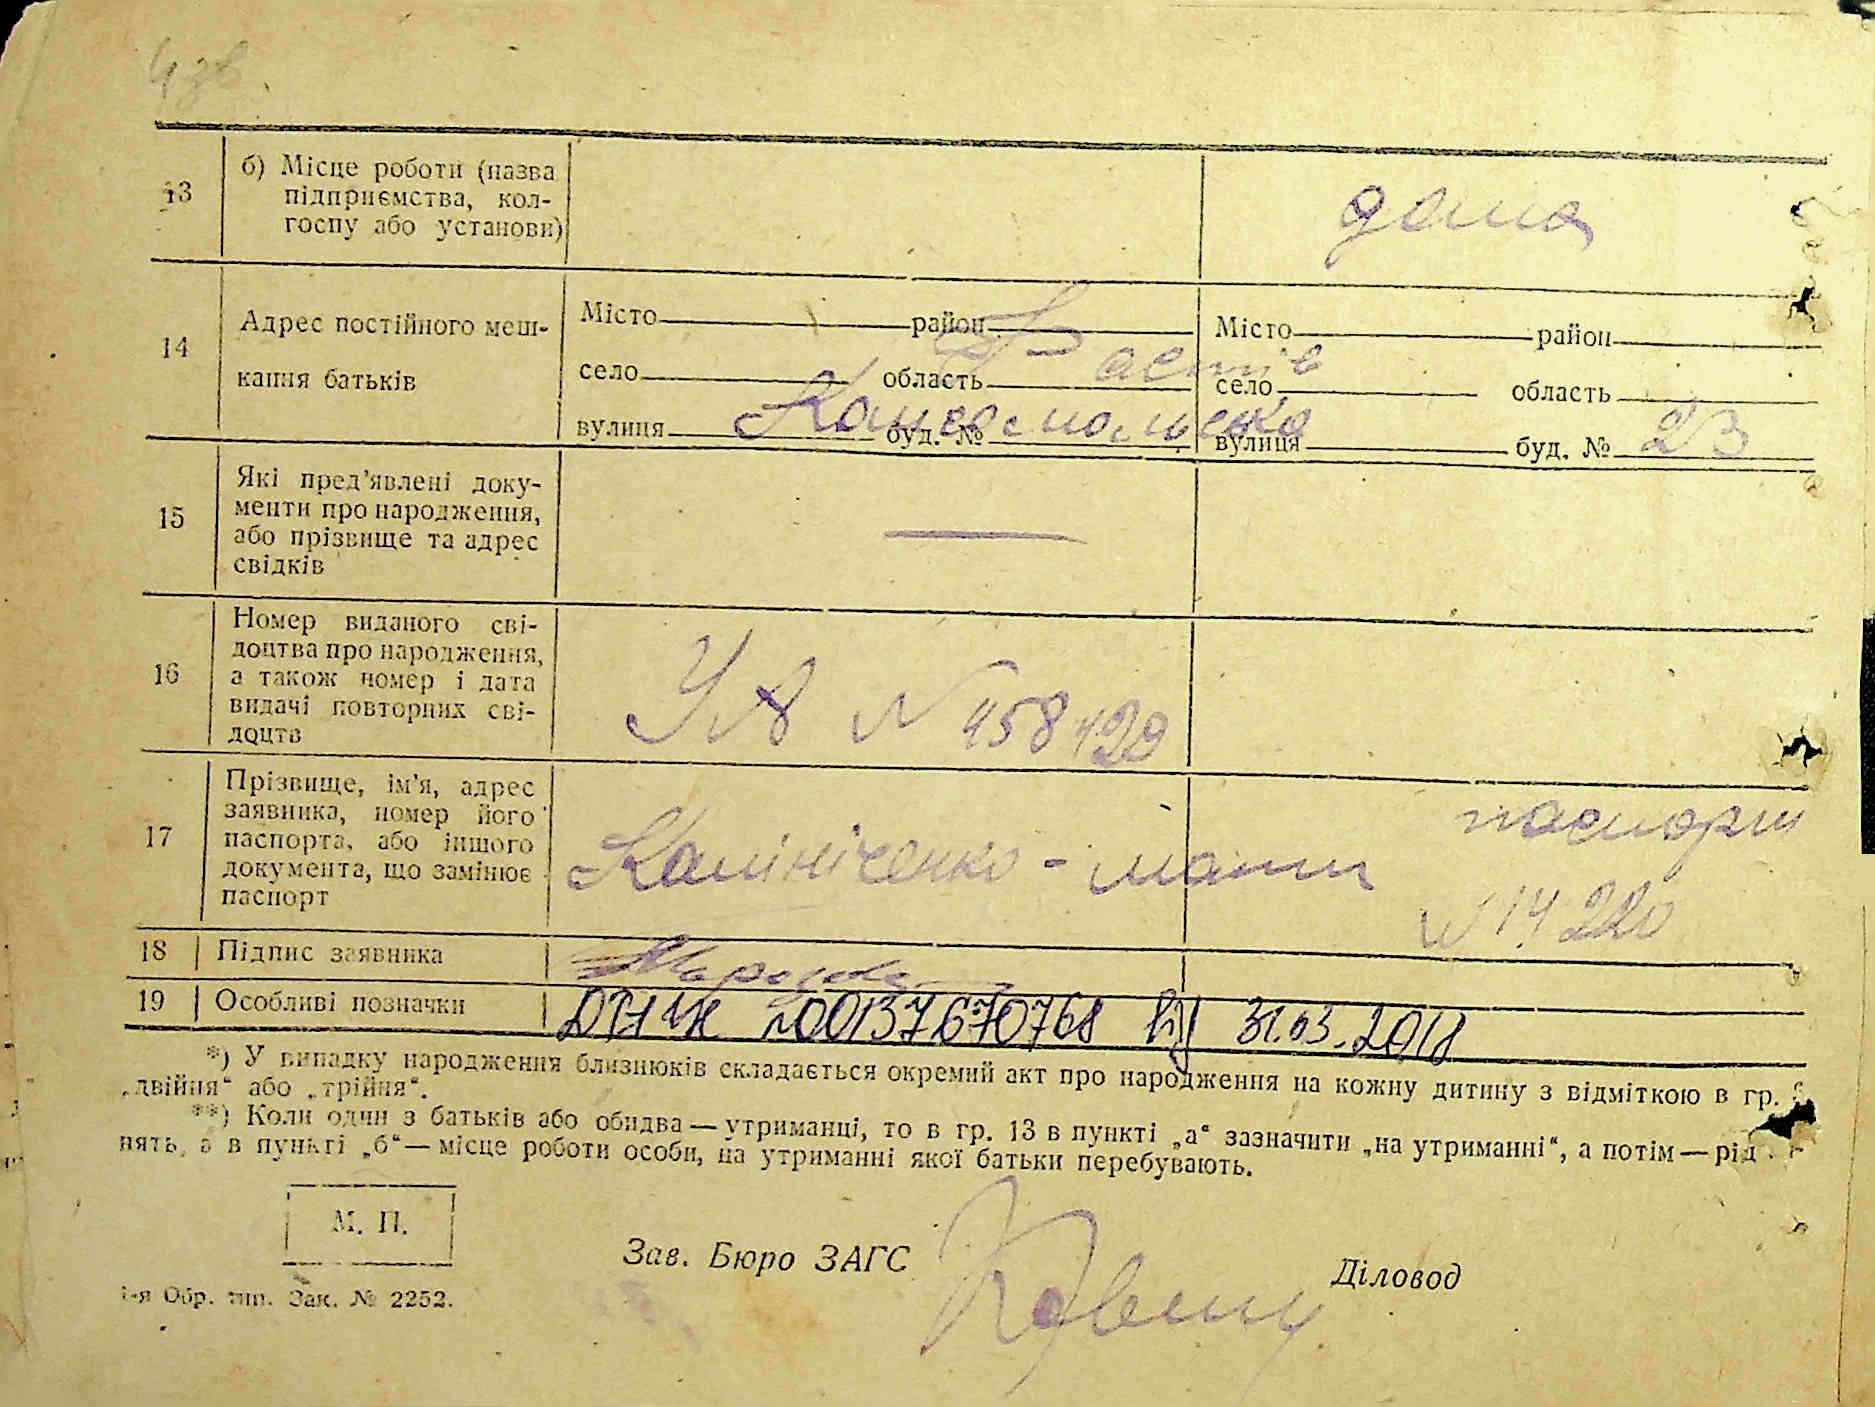 4 зв
13
б) Місце роботи (назва
підприємства, кол-
госпу або установи)
дома
14
Адрес постійного меш-
кання батьків
Місто район
село область
вулиця буд. №
Місто район
село область
вулиця буд. №
Фастів
23
15
Які пред’явлені доку-
менти про народження,
або прізвище та адрес
свідків
16
Номер виданого сві-
доцтва про народження,
а також номер і дата
видачі повторних сві-
доцтв
УА № 458429
17
Прізвище, ім’я, адрес
заявника, номер його
паспорта, або іншого
документа, що замінює
паспорт
Калініченко - мати
паспорт
№ 14220
18 Підпис заявника
19 Особливі позначки
00137670768 від 31.03.2018
*) У випадку народження близнюків складається окремий акт про народження на кожну дитину з відміткою в гр.
„двійня“ або „трійня“.
**) Коли один з батьків або обидва — утриманці, то в гр. 13 в пункті „а“ зазначити „на утриманні“, а потім — рід
нять, а в пункті „б“ — місце роботи особи, на утриманні якої батьки перебувають.
М. П.
Зав. Бюро ЗАГС
Діловод
1-я Обр. тип. Зак. № 2252.